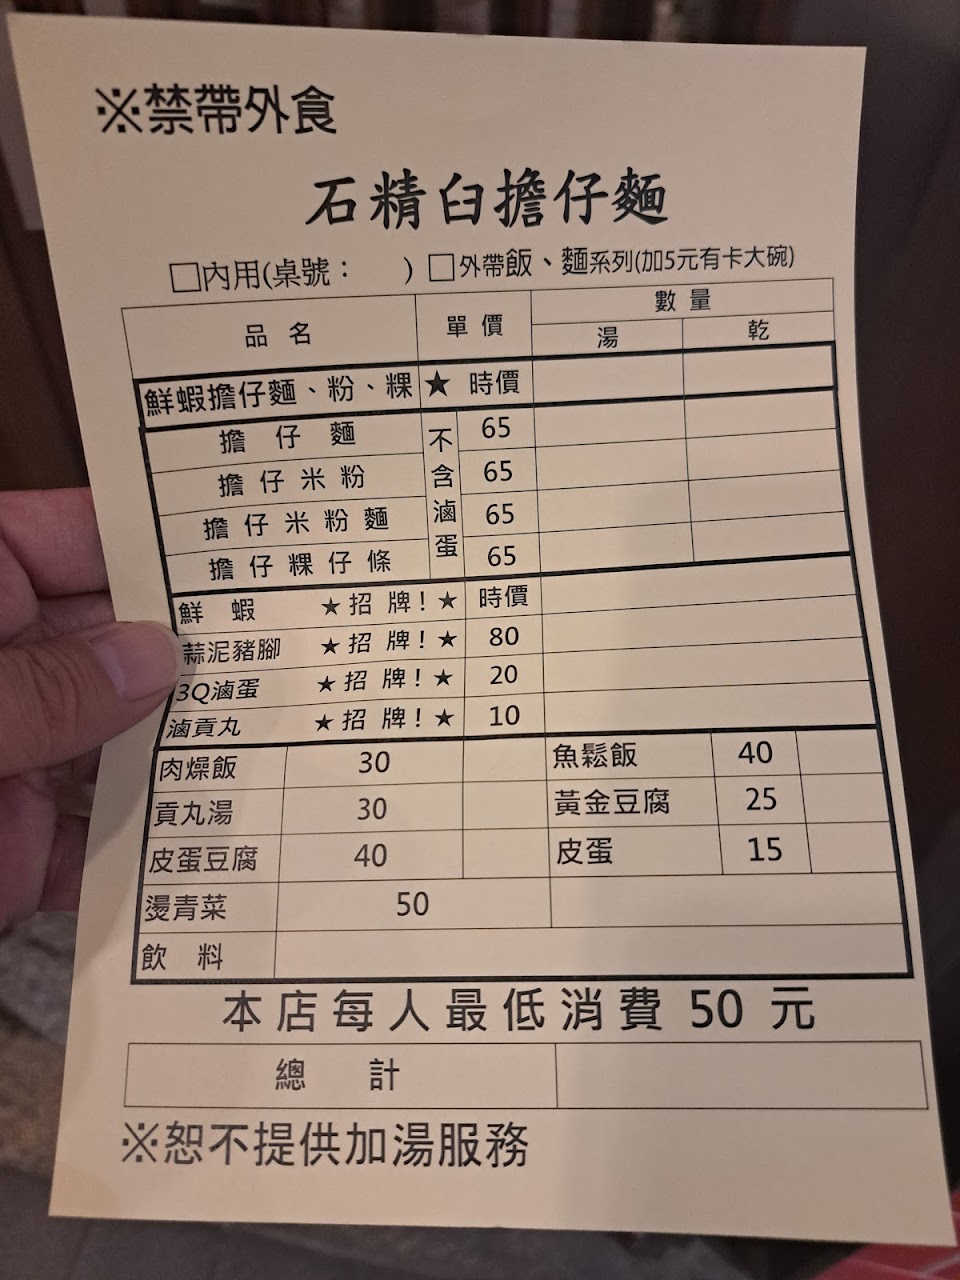 ※禁帶外食
石精臼擔仔麵
□內用(桌號： ) □外帶飯、麵系列(加5元有卡大碗)
品 名 單 價 數 量
湯 乾
鮮蝦擔仔麵、粉、粿 ★ 時價
擔 仔 麵 65
擔 仔 米 粉 65
擔 仔 米 粉 麵 65
擔 仔 粿 仔 條 65
不含滷蛋
鮮 蝦 ★招 牌!★ 時價
蒜泥豬腳 ★招 牌!★ 80
3Q滷蛋 ★招 牌!★ 20
滷貢丸 ★招 牌!★ 10
肉燥飯 30 魚鬆飯 40
貢丸湯 30 黃金豆腐 25
皮蛋豆腐 40 皮蛋 15
燙青菜 50
飲 料
本店每人最低消費 50 元
總 計
※恕不提供加湯服務